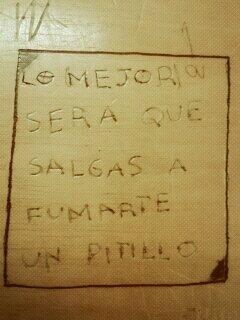 LO MEJOR
SERA QUE
SALGAS A
FUMARTE
UN PITILLO